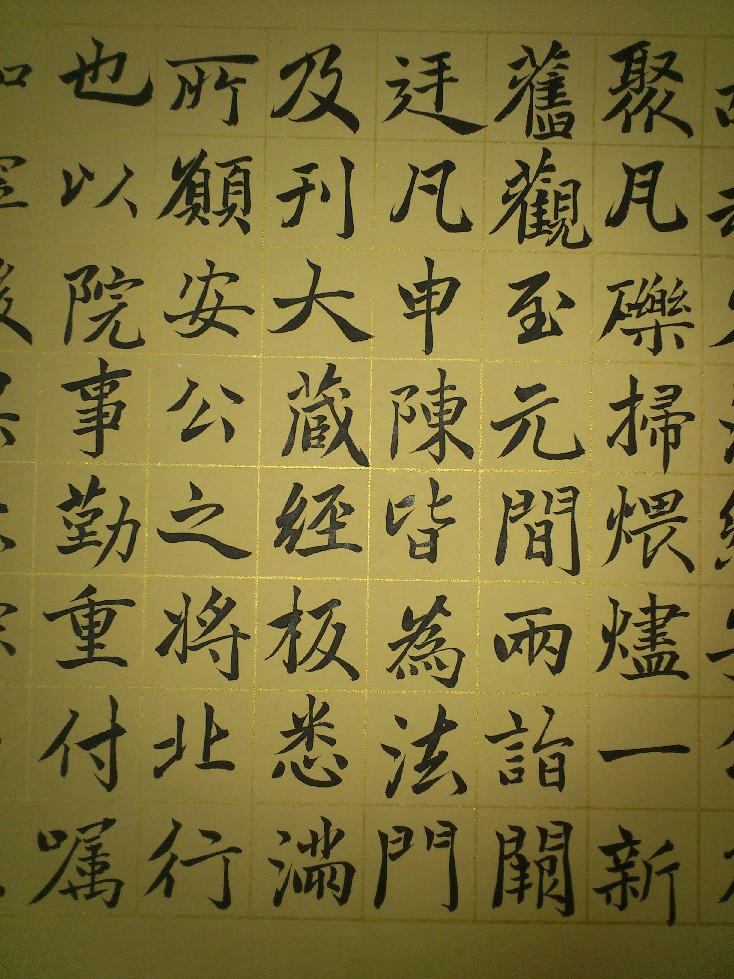 聚凡礫掃煨燼一新
舊觀至元間兩詣闕
迋凡申陳皆為法門
及刊大蔵經板悉滿
所願安公之將北行
也以院事勤重付嘱